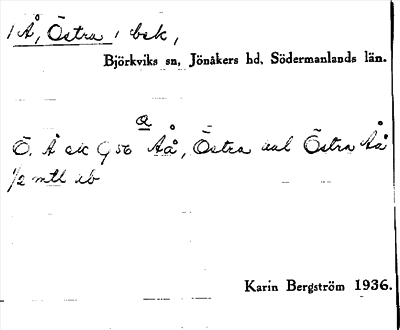 Å, Östra, bsk,
Björkviks sn, Jönåkers hd, Södermanlands län.
Ö. Å ek G 56 Åå, Östra aul Östra Åå
1/2 mtl sb
Karin Bergström 1936.